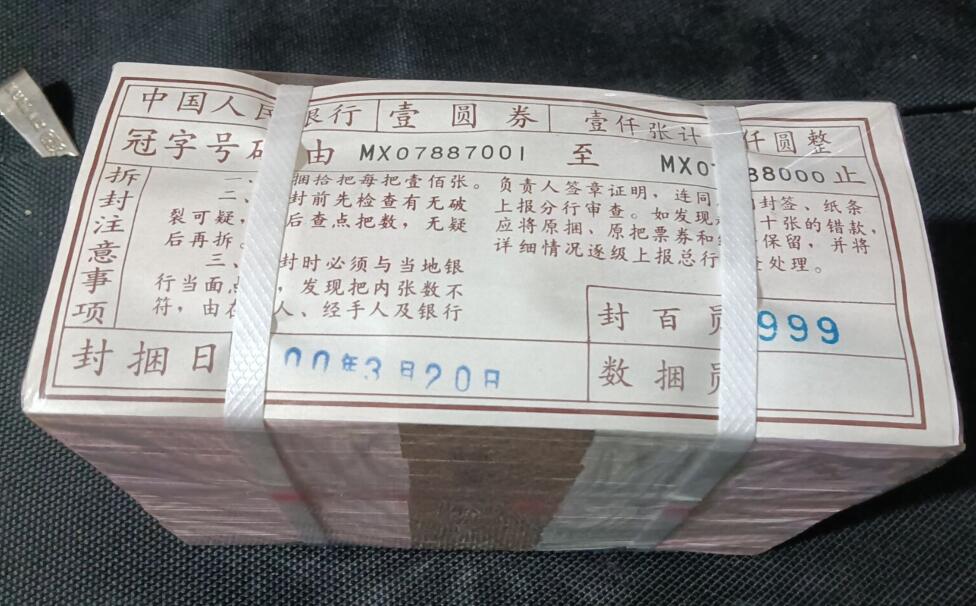 中国人民银行 壹圆券 壹仟张计 仟圆整
冠字号码由 MX07887001 至 MX07 88000止
拆封注意事项
一、 捆拾把每把壹佰张。
二、 封前先检查有无破
裂可疑, 后查点把数,无疑
后再拆。
三、 封时必须与当地银
行当面点 ,发现把内张数不
符,由在 人、经手人及银行
负责人签章证明,连同 封签、纸条
上报分行审查。如发现 十张的错款,
应将原捆、原把票券和 保留,并将
详细情况逐级上报总行 处理。
封捆日 00年3月20日
封百员 999
数捆员